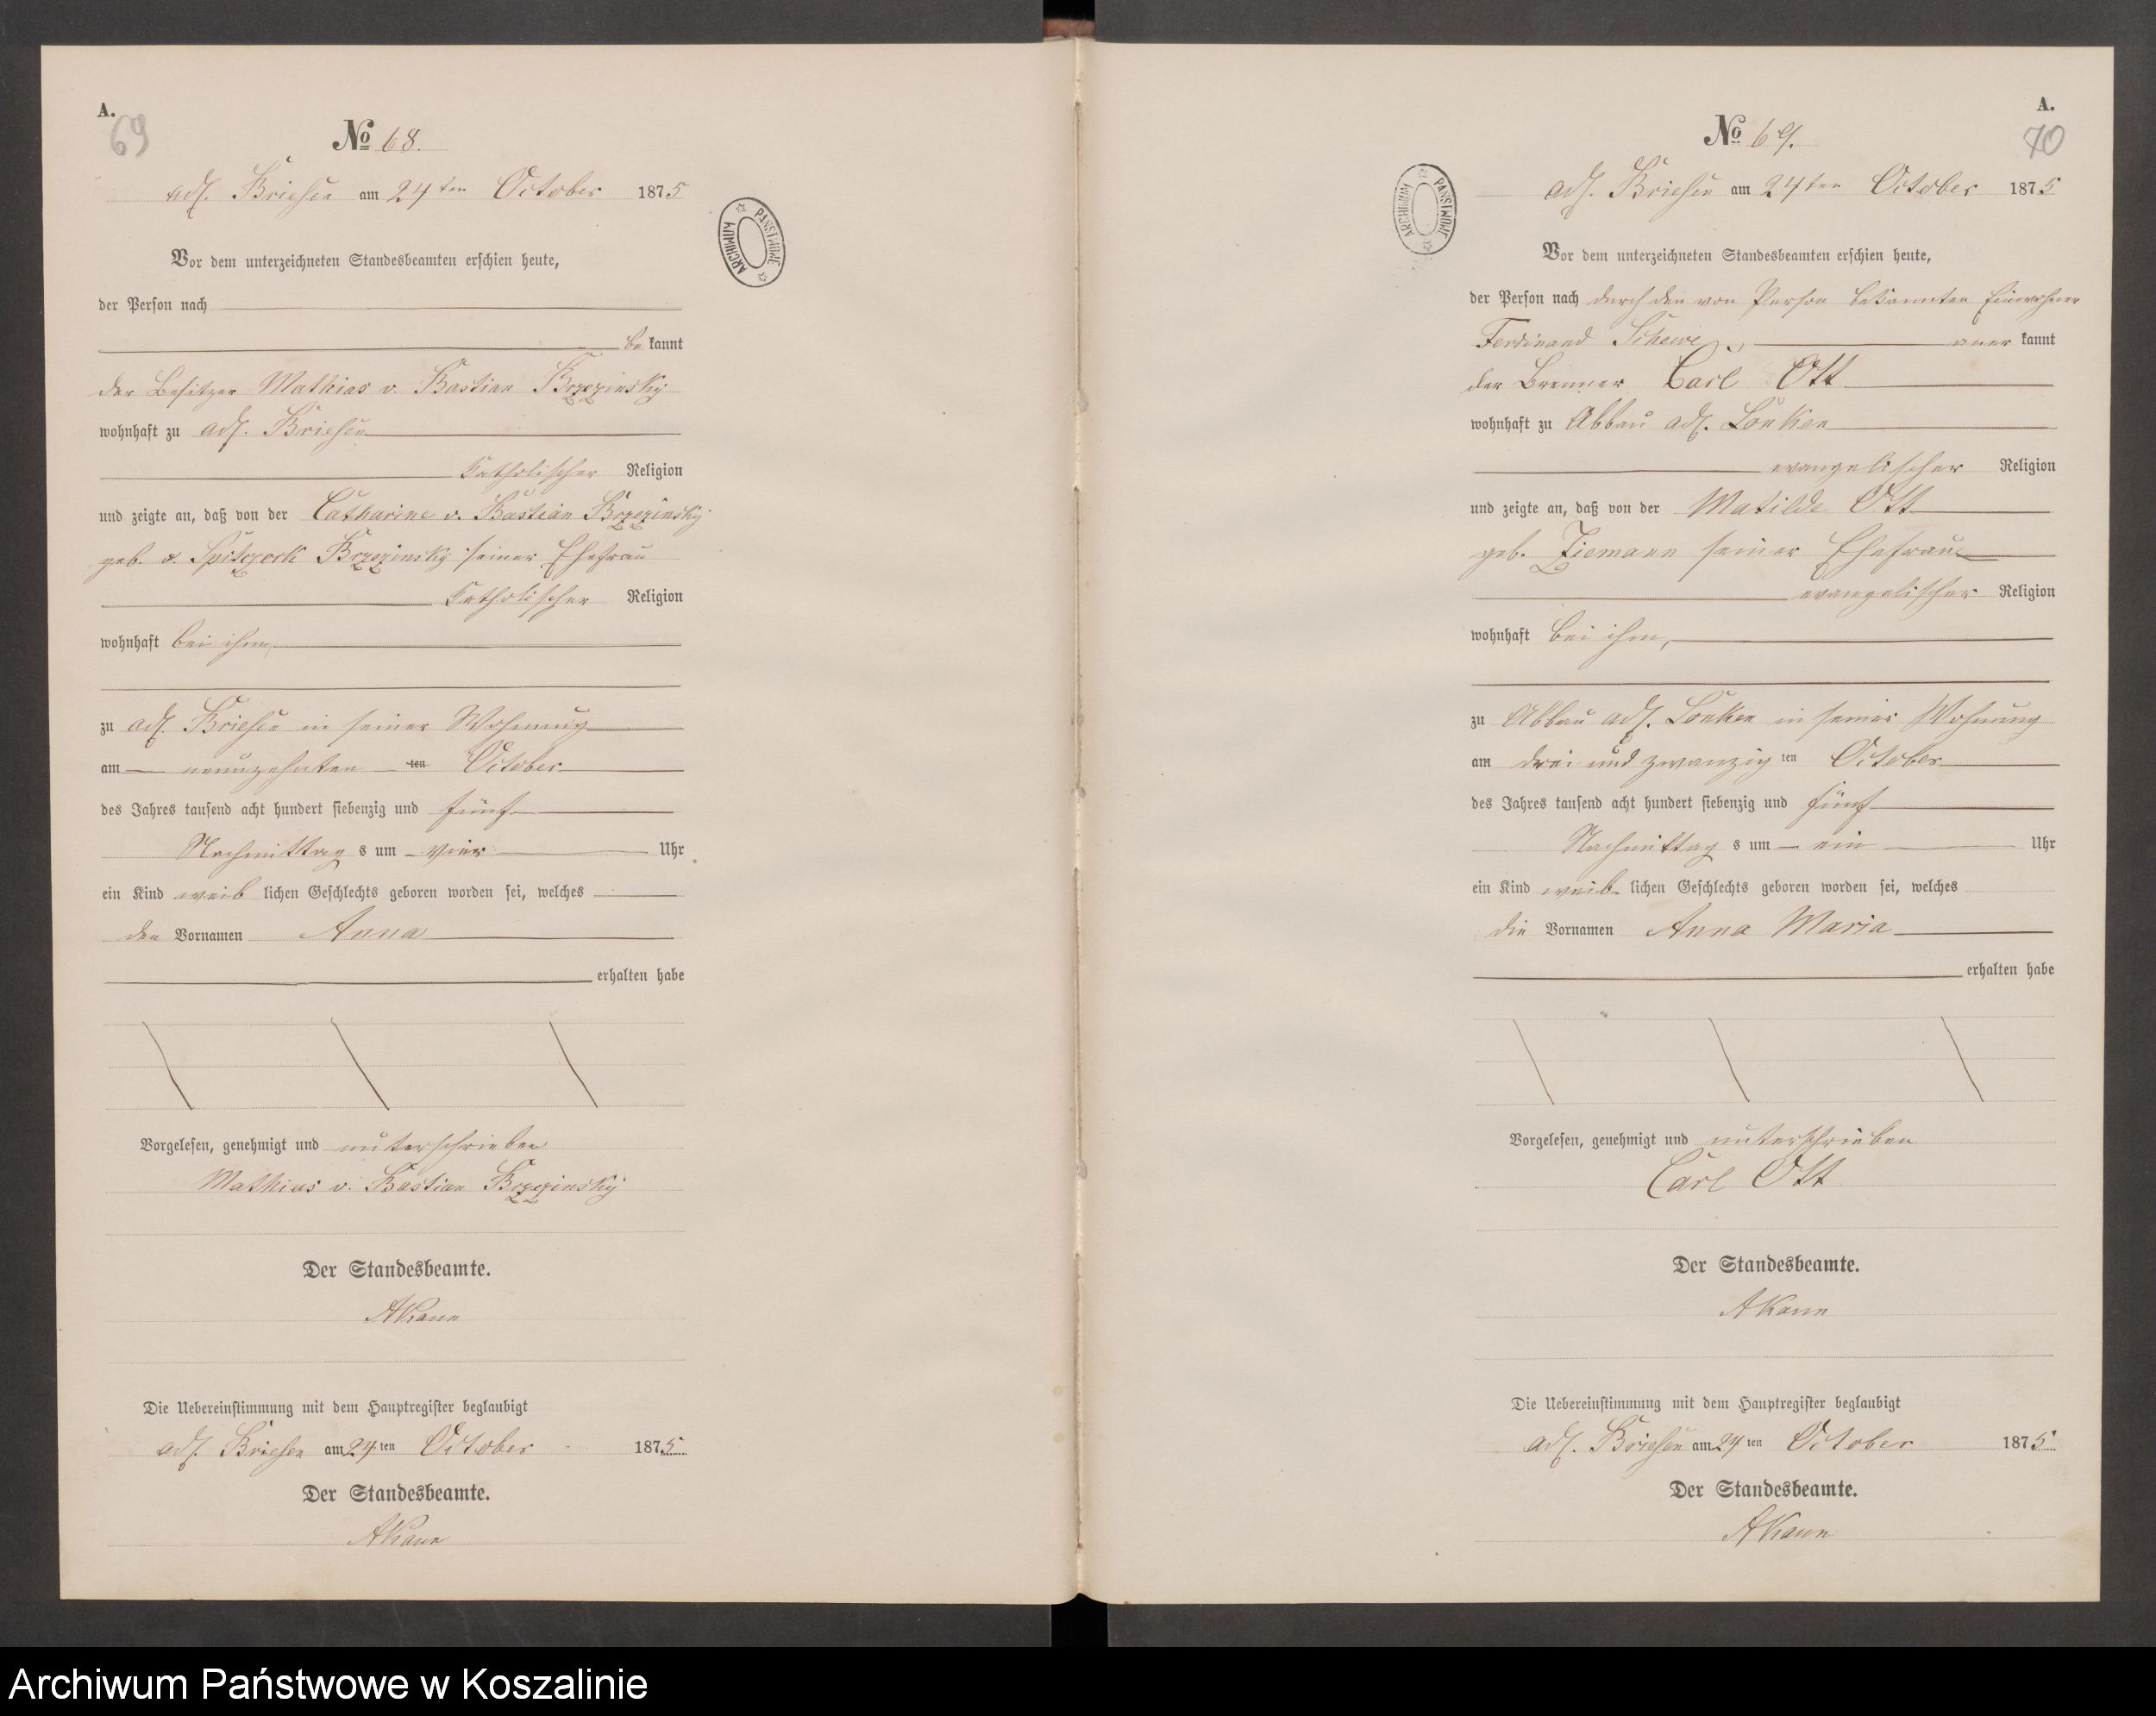 A.
69
No 68.
adl. Briesen am 24ten October 1875
Vor dem unterzeichneten Standesbeamten erschien heute,
der Person nach
bekannt
der Besitzer Mathias v. Bastian Brzezinsky
wohnhaft zu adl. Briesen
Katholischer Religion
und zeigte an, daß von der Catharine v. Bastian Brzezinsky
geb. v. Spiczeck Brzezinsky seiner Ehefrau
Katholischer Religion
wohnhaft bei ihm
zu adl. Briesen in seiner Wohnung
am neunzehnten ten October
des Jahres tausend acht hundert siebenzig und fünf
Nachmittags um vier Uhr
ein Kind weiblichen Geschlechts geboren worden sei, welches
den Vornamen Anna
erhalten habe
Vorgelesen, genehmigt und unterschrieben
Mathias v. Bastian Brzezinsky
Der Standesbeamte.
AKann
Die Uebereinstimmung mit dem Hauptregister beglaubigt
adl. Briesen am 24ten October 1875
Der Standesbeamte.
AKann
ARCHIWUM PAŃSTWOWE
A.
70
No 69.
adl. Briesen am 24ten October 1875
ARCHIWUM PAŃSTWOWE
Vor dem unterzeichneten Standesbeamten erschien heute,
der Person nach durch den von Person bekannten Einwohner
Ferdinand Schewe, anerkannt
der Brenner Carl Ott
wohnhaft zu Abbau adl. Lonken
evangelischer Religion
und zeigte an, daß von der Matilde Ott
geb. Ziemann seiner Ehefrau
evangelischer Religion
wohnhaft bei ihm,
zu Abbau adl. Lonken in seiner Wohnung
am drei und zwanzigten October
des Jahres tausend acht hundert siebenzig und fünf
Nachmittags um ein Uhr
ein Kind weiblichen Geschlechts geboren worden sei, welches
die Vornamen Anna Maria
erhalten habe
Vorgelesen, genehmigt und unterschrieben
Carl Ott
Der Standesbeamte.
AKann
Die Uebereinstimmung mit dem Hauptregister beglaubigt
adl. Briesen am 24ten October 1875
Der Standesbeamte.
AKann
Archiwum Państwowe w Koszalinie